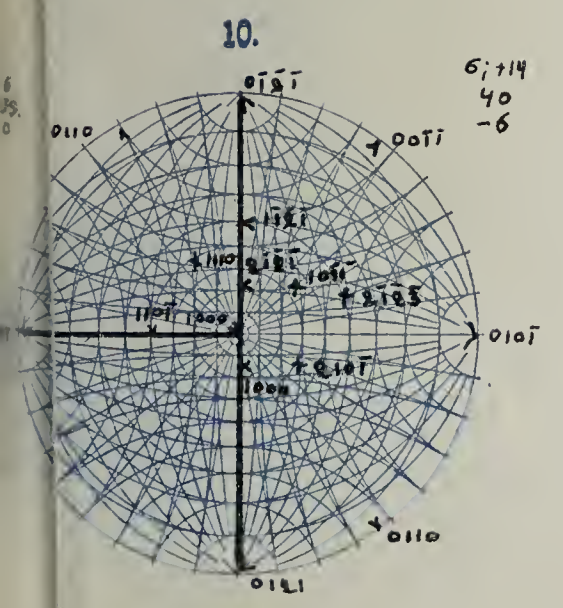 10.
6; +14
40
-6
01̄2̄1̄
0110
001̄1̄
11̄2̄1̄
1110
21̄2̄1̄
101̄1̄
21̄2̄3̄
1101̄
1000
0101̄
2101̄
1000
0110
0121